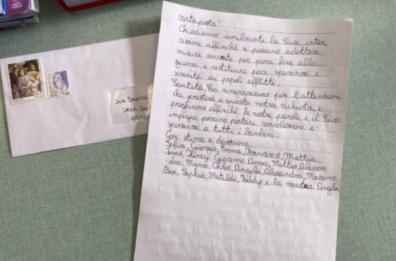 contrapposta"
Chiediamo umilmente la Sua inter
cessione affinché si possano adottare
misure concrete per porre fine alla
guerra e restituire pace speranza e
serenità ai popoli afflitti.
Santità, La ringraziamo per l'attenzione
che presterà a questa nostra richiesta, e
preghiamo affinché le nostre parole e il Suo
impegno possano portare consolazione e
speranza a tutti i bambini.
Con stima e devozione
Sofia, Giorgia, Emma, Mattia,
Giacomo, Anna, Matteo,
Marco, Chloe, Angela, Alessandra, Massimo,
Sophia, Matilde, Teddy e la maestra Angela
Sua
Casa